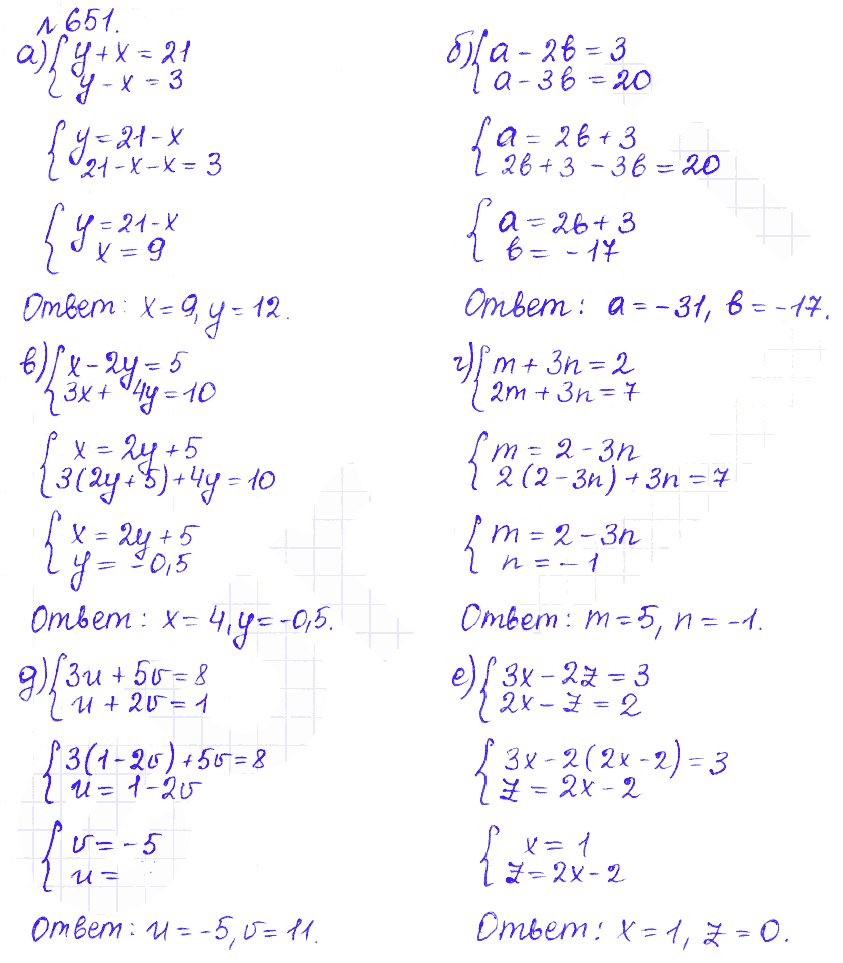 № 651.
а) { y + x = 21
y - x = 3
{ y = 21 - x
21 - x - x = 3
{ y = 21 - x
x = 9
Ответ: x = 9, y = 12.
б) { a - 2b = 3
a - 3b = 20
{ a = 2b + 3
2b + 3 - 3b = 20
{ a = 2b + 3
b = -17
Ответ: a = -31, b = -17.
в) { x - 2y = 5
3x + 4y = 10
{ x = 2y + 5
3(2y + 5) + 4y = 10
{ x = 2y + 5
y = -0,5
Ответ: x = 4, y = -0,5.
г) { m + 3n = 2
2m + 3n = 7
{ m = 2 - 3n
2(2 - 3n) + 3n = 7
{ m = 2 - 3n
n = -1
Ответ: m = 5, n = -1.
д) { 3u + 5v = 8
u + 2v = 1
{ 3(1 - 2v) + 5v = 8
u = 1 - 2v
{ v = -5
u =
Ответ: u = -5, v = 11.
е) { 3x - 2z = 3
2x - z = 2
{ 3x - 2(2x - 2) = 3
z = 2x - 2
{ x = 1
z = 2x - 2
Ответ: x = 1, z = 0.